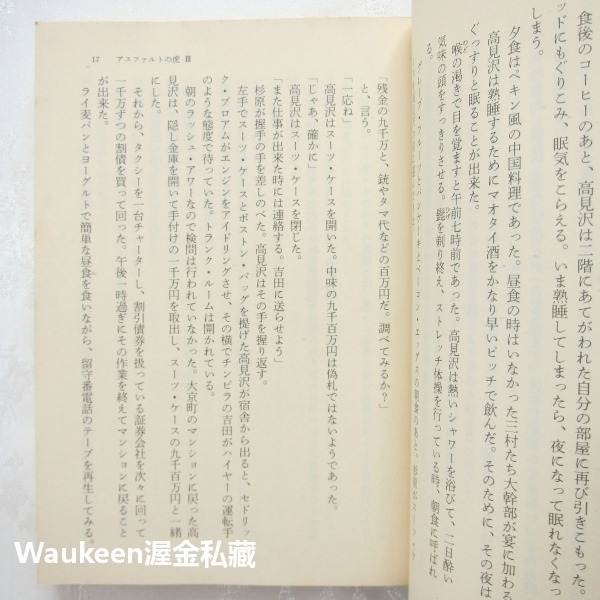 食後のコーヒーのあと、高見沢は二階にあてがわれた自分の部屋に再び引きこもった。
ッドにもぐりこみ、眠気をこらえる。いま熟睡してしまったら、夜になって眠れなくなっ
しまう。
夕食はペキン風の中国料理であった。昼食の時はいなかった三村たち大幹部が宴に加わる
高見沢は熟睡するためにマオタイ酒をかなり早いピッチで飲んだ。そのために、その夜は
ぐっすりと眠ることが出来た。
喉の渇きで目を覚ますと午前七時前であった。高見沢は熱いシャワーを浴びて、二日酔い
気味の頭をすっきりさせる。髭を剃り終え、ストレッチ体操を行っている時、朝食に呼ばれ
る。
グレープ・フルーツとパンケーキとベーコン・エッグスの朝食のあと、
17 アスファルトの虎 Ⅱ
「残金の九千万と、銃やタマ代などの百万円だ。調べてみるか？」
と、言う。
「一応ね」
高見沢はスーツ・ケースを開いた。中味の九千百万円は偽札ではないようであった。
「じゃあ、確かに」
高見沢はスーツ・ケースを閉じた。
「また仕事が出来た時には連絡する。吉田に送らせよう」
杉原が握手の手を差しのべた。高見沢はその手を握り返す。
左手でスーツ・ケースとボストン・バッグを提げた高見沢が宿舎から出ると、セドリッ
ク・ブロアムがエンジンをアイドリングさせ、その横でチンピラの吉田がハイヤーの運転手
のような態度で待っていた。トランク・ルームは開かれている。
朝のラッシュ・アワーなので検問は行われていなかった。大京町のマンションに戻った高
見沢は、隠し金庫を開いて手付けの一千万円を取出し、スーツ・ケースの九千百万円と一緒
にした。
それから、タクシーを一台チャーターし、割引債券を扱っている証券会社を次々に回って、
一千万ずつの割債を買って回った。午後一時過ぎにその作業を終えてマンションに戻ること
が出来た。
ライ麦パンとヨーグルトで簡単な昼食を食いながら、留守番電話のテープを再生してみる。
Waukeen渥金私藏